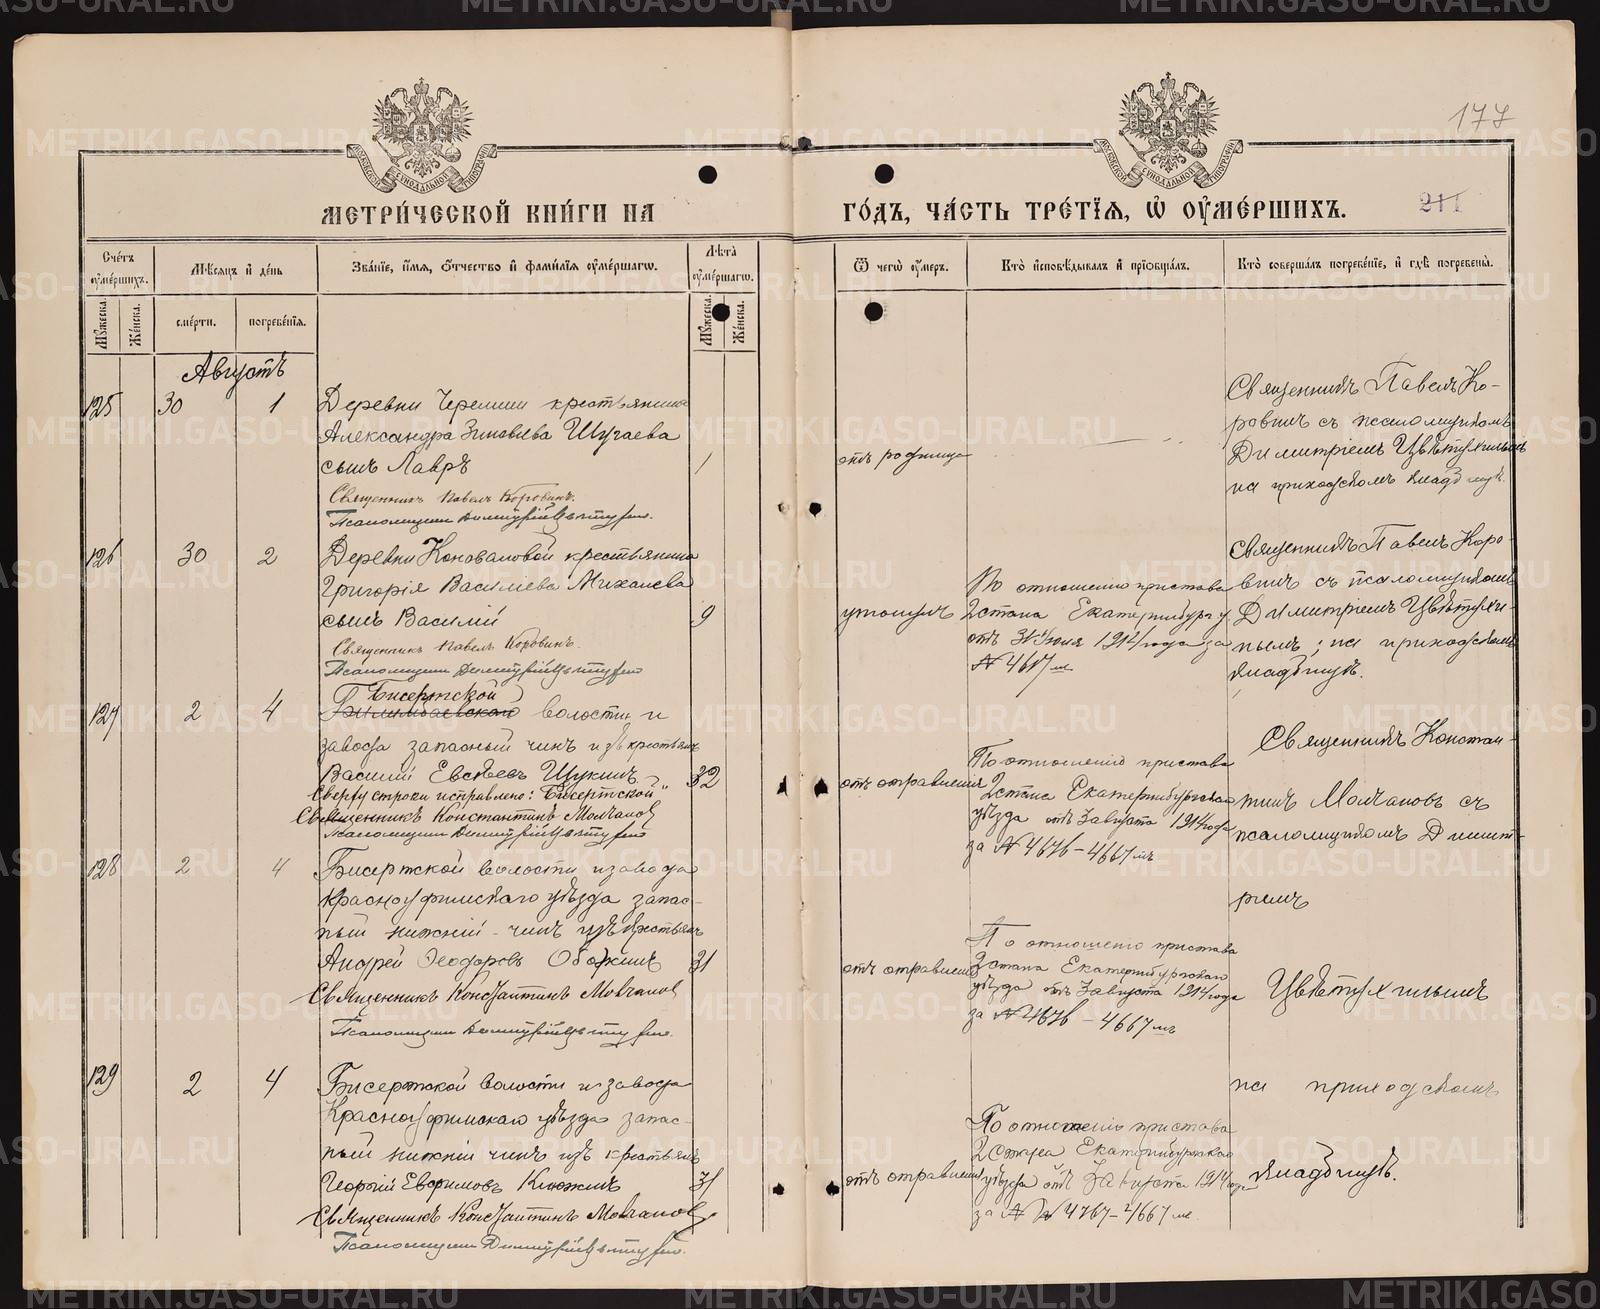 177
МЕТРИ́ЧЕСКОЙ КНИ́ГИ НА
ГО́ДЪ, ЧА́СТЬ ТРЕ́ТІЯ, Ѽ ОУ҆МЕ́РШИХЪ.
211
Сче́тъ оу҆ме́ршихъ.
Мѣ́сяцъ и҆ де́нь
Зва́нїе, и҆́мя, ѻ҆́тчество и҆ фами́лїя оу҆ме́ршагѡ.
Лѣ́та оу҆ме́ршагѡ.
Ѿ чегѡ̀ оу҆́меръ.
Кто̀ и҆сповѣ́дывалъ и҆ прїѡбща́лъ.
Кто̀ соверша́лъ погребе́нїе, и҆ гдѣ̀ погребены̀.
Мꙋ́жеска.
Же́нска.
сме́рти.
погребе́нїѧ.
Мꙋ́жеска.
Же́нска.
Августъ
125
30
1
Деревни Черемши крестьянина
Александра Зиновьева Шугаева
сынъ Лавръ
1
Священникъ Павелъ Коровинъ.
Псаломщикъ Димитрій Цвѣтухинъ.
отъ родимца
Священникъ Павелъ Ко-
ровинъ съ псаломщикомъ
Димитріемъ Цвѣтухинымъ
на приходскомъ кладбищѣ.
126
30
2
Деревни Коноваловой крестьянина
Григорія Васильева Михалева
сынъ Василій
9
Священникъ Павелъ Коровинъ.
Псаломщикъ Димитрій Цвѣтухинъ
утонулъ
По отношенію пристава
2 стана Екатеринбург у.
отъ 31 Іюля 1914 года за
№ 4617 м.
Священникъ Павелъ Коро-
винъ съ псаломщикомъ
Димитріемъ Цвѣтухи-
нымъ; на приходскомъ
кладбищѣ.
127
2
4
Бисертской
Билимбаевской волости и
завода запасный чинъ изъ крестьянъ
Василій Евсѣевъ Щукинъ
32
Сверху строки исправлено: "Бисертской"
Священникъ Константинъ Молчановъ
Псаломщикъ Димитрій Цвѣтухинъ
отъ отравленія
По отношенію пристава
2 стана Екатеринбургскаго
уѣзда отъ 3 августа 1914 года
за № 4676-4667 мъ
Священникъ Констан-
тинъ Молчановъ съ
псаломщикомъ Димит-
ріемъ
128
2
4
Бисертской волости и завода
Красноуфимскаго уѣзда запас-
ный нижній чинъ изъ крестьянъ
Андрей Ѳеодоровъ Обожинъ
31
Священникъ Константинъ Молчановъ
Псаломщикъ Димитрій Цвѣтухинъ.
отъ отравленія
По отношенію пристава
2 стана Екатеринбургскаго
уѣзда отъ 3 августа 1914 года
за № 4676-4667 мъ
Цвѣтухинымъ
129
2
4
Бисертской волости и завода
Красноуфимскаго уѣзда запас-
ный нижній чинъ изъ крестьянъ
Георгій Евфимовъ
31
Священникъ Константинъ Молчановъ
Псаломщикъ Димитрій Цвѣтухинъ.
отъ отравленія
По отношенію пристава
2 стана Екатеринбургскаго
уѣзда отъ 3 августа 1914 года
за № 4767-4667 м.
на приходскомъ
кладбищѣ.
METRIKI.GASO-URAL.RU